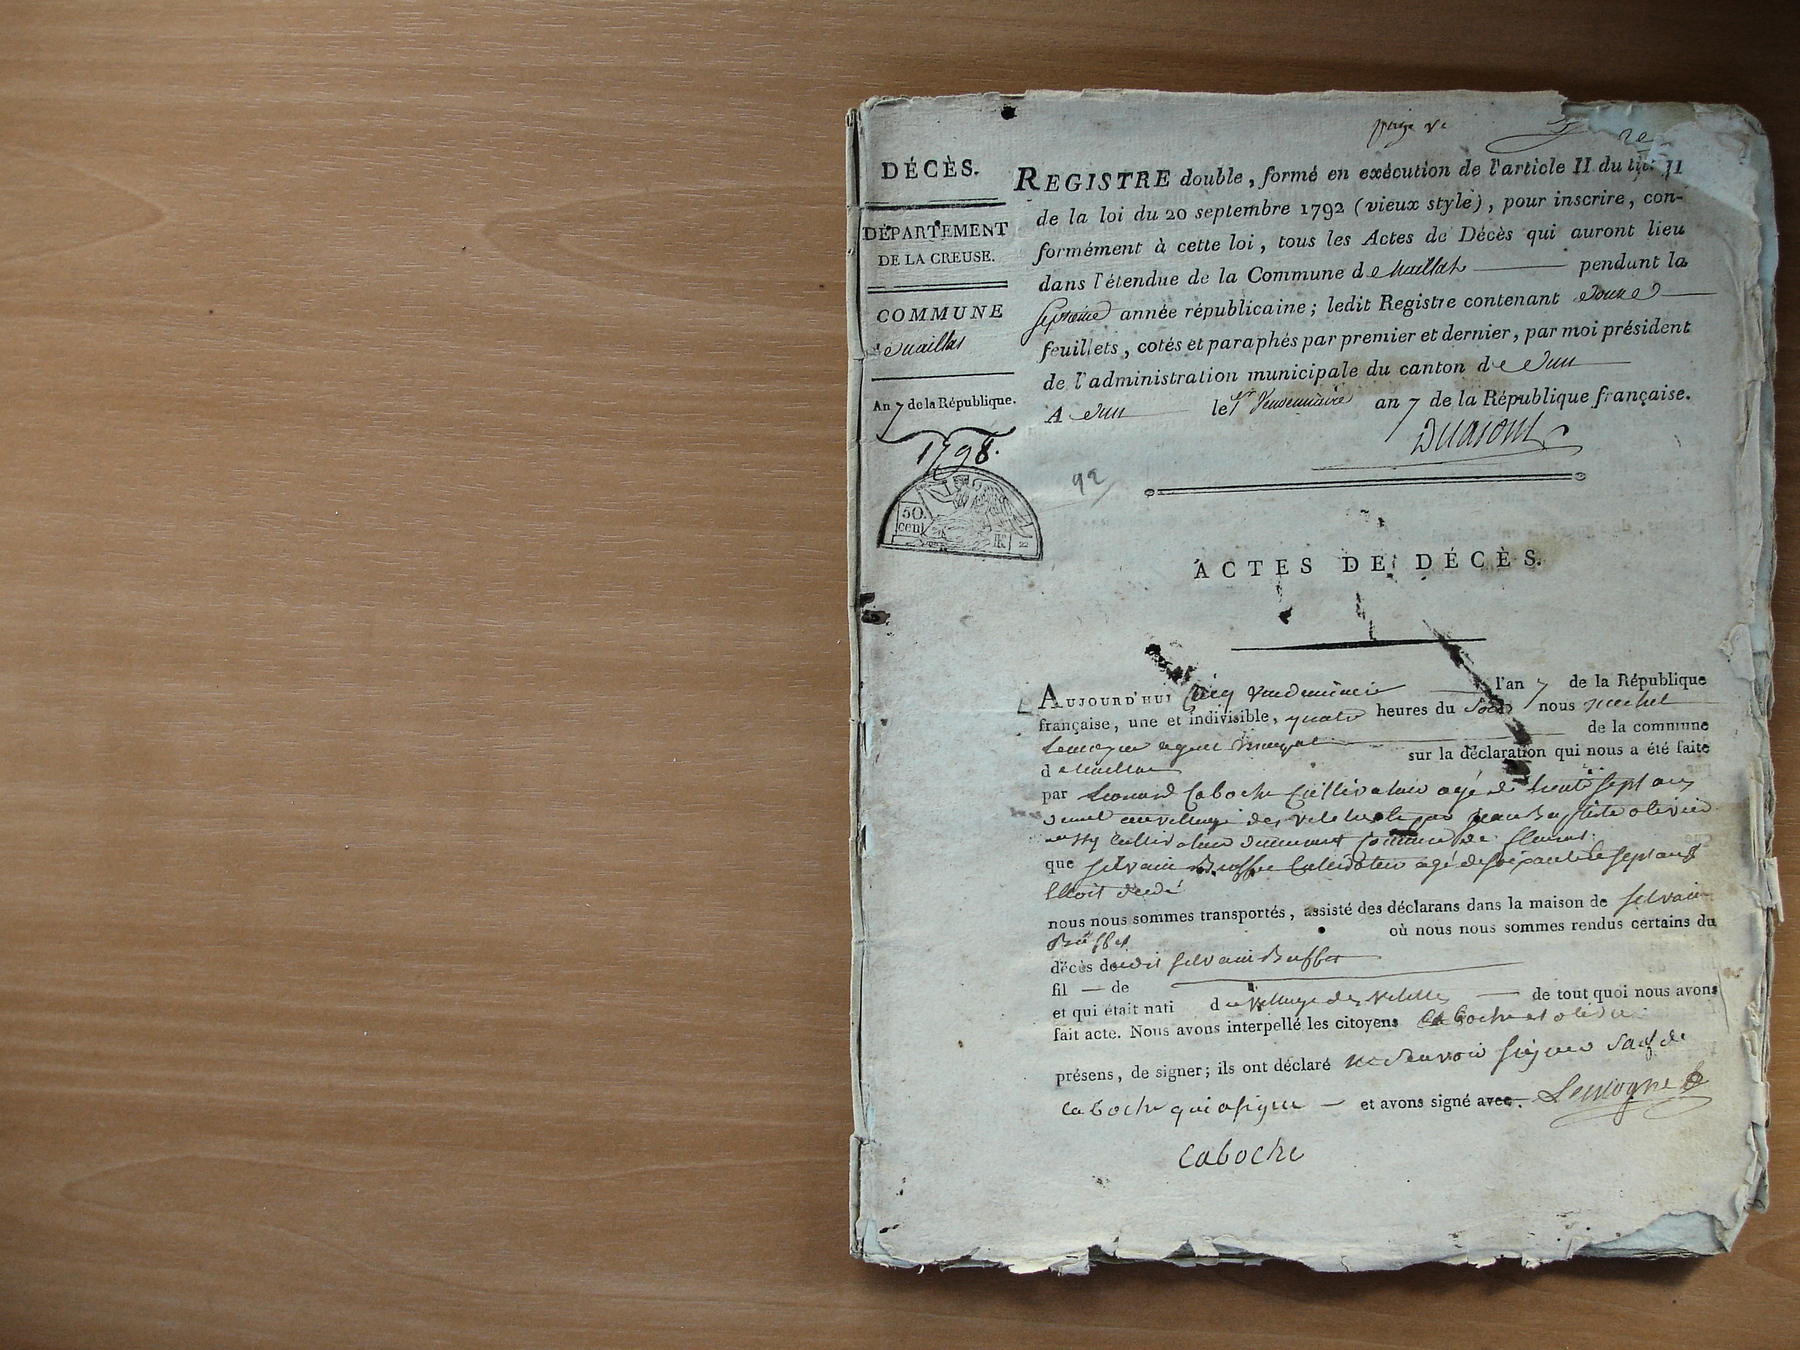 DÉCÈS.
DÉPARTEMENT
DE LA CREUSE.
COMMUNE
de naillat
An 7 de la République.
1798.
50.
cent
92
REGISTRE double, formé en exécution de l'article II du tit. II
de la loi du 20 septembre 1792 (vieux style), pour inscrire, con-
formément à cette loi, tous les Actes de Décès qui auront lieu
dans l'étendue de la Commune de naillat pendant la
septieme année républicaine; ledit Registre contenant douze
feuillets, cotés et paraphés par premier et dernier, par moi président
de l'administration municipale du canton de dun
A dun le 1er Vendemiaire an 7 de la République française.
ACTES DE DÉCÈS.
AUJOURD'HUI Cinq Vendemiaire l'an 7 de la République
française, une et indivisible, quatre heures du Soir nous michel
Lemoyne agent de la commune
de naillat sur la déclaration qui nous a été faite
par Leonard Caboche Cultivateur agé de trente sept ans
au village des par jean Baptiste olivier
Cultivateur demeurant Commune de fleurat
que silvain Buffet Cultivateur agé de soixante sept ans
Etoit decedé
nous nous sommes transportés, assisté des déclarans dans la maison de silvain
Buffet où nous nous sommes rendus certains du
décès dudit silvain Buffet
fil — de
et qui était nati du village des de tout quoi nous avons
fait acte. Nous avons interpellé les citoyens Caboche et olivier
présens, de signer; ils ont déclaré ne Savoir signer Sauf le
Caboche qui a signé — et avons signé avec. Lemoyne
Caboche